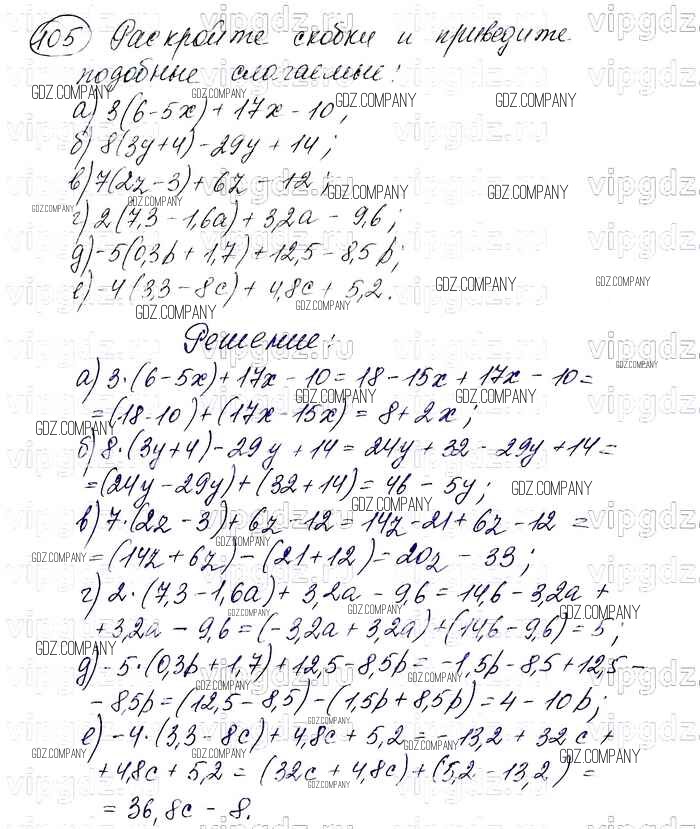 105 Раскройте скобки и приведите
подобные слагаемые:
а) 3(6-5x)+17x-10;
б) 8(3y+4)-29y+14;
в) 7(2z-3)+6z-12;
г) 2(7,3-1,6a)+3,2a-9,6;
д) -5(0,3p+1,7)+12,5-8,5p;
е) -4(3,3-8c)+4,8c+5,2.
Решение:
а) 3·(6-5x)+17x-10=18-15x+17x-10=
=(18-10)+(17x-15x)=8+2x;
б) 8·(3y+4)-29y+14=24y+32-29y+14=
=(24y-29y)+(32+14)=46-5y;
в) 7·(2z-3)+6z-12=14z-21+6z-12=
=(14z+6z)-(21+12)=20z-33;
г) 2·(7,3-1,6a)+3,2a-9,6=14,6-3,2a+
+3,2a-9,6=(-3,2a+3,2a)+(14,6-9,6)=5;
д) -5·(0,3p+1,7)+12,5-8,5p=-1,5p-8,5+12,5-
-8,5p=(12,5-8,5)-(1,5p+8,5p)=4-10p;
е) -4·(3,3-8c)+4,8c+5,2=-13,2+32c+
+4,8c+5,2=(32c+4,8c)+(5,2-13,2)=
=36,8c-8.
GDZ.COMPANY
vipgdz.ru